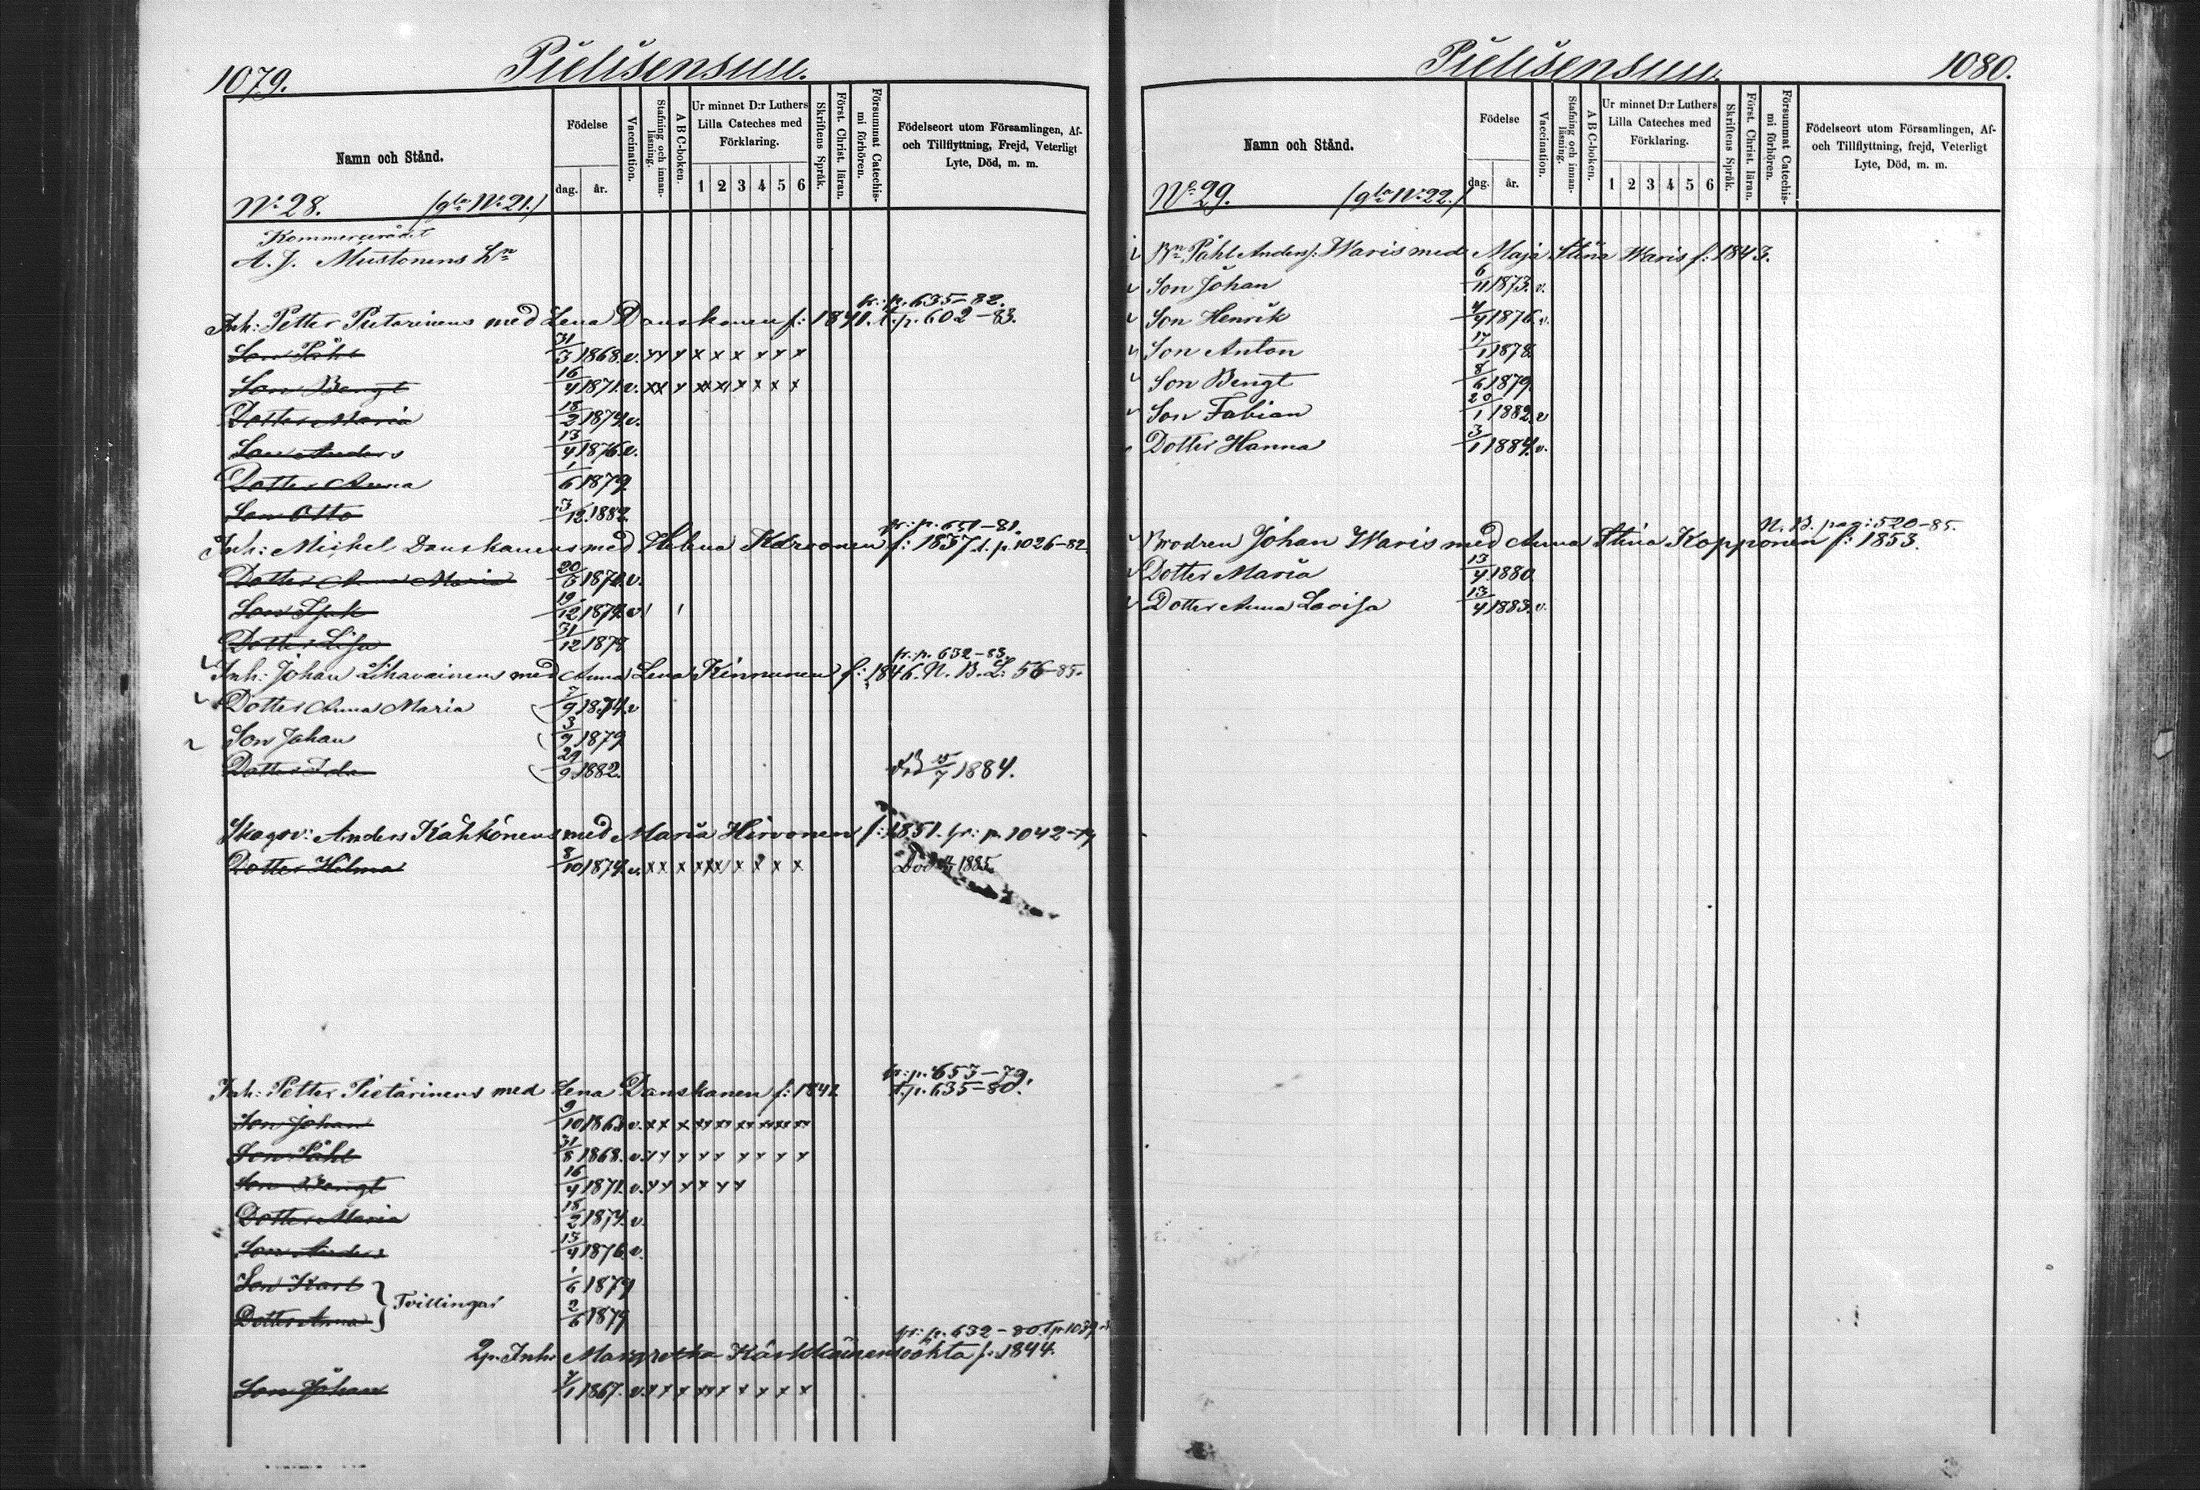 1079.
Pielisensuu.
Namn och Stånd.
Födelse
dag.
år.
Vaccination.
Stafning och innan-läsning.
A B C-boken.
Ur minnet D:r Luthers Lilla Cateches med Förklaring.
1 2 3 4 5 6
Skriftens Språk.
Först. Christ. läran.
Försummat Catechis-mi förhören.
Födelseort utom Församlingen, Af- och Tillflyttning, Frejd, Veterligt Lyte, Död, m. m.
No 28. (gla No 21.)
Kommercerådet
A. J. Mustonens
fr: p. 635-82.
Inh: Petter Pietarinens med Lena Danskanen f: 1841. t. p. 602-83.
Son Påhl 31/3 1868. v. x x x x x x x x x
Son Bengt 16/4 1871. v. x x x x x x x x x x
Dotter Maria 18/2 1874. v.
Son Anders 13/4 1876. v.
Dotter Anna 1/6 1879
Son Otto 3/12 1882
fr: p. 651-81.
Inh: Mickel Danskanens med Helena f: 1857. t. p 1026-82
Dotter Anna Maria 20/5 v.
Son Isak 19/12 1874. v.
Dotter Lisa 31/12 1878
fr: p. 632-83.
Inh: Johan Lihavainens med Anna Lena Kinnunen f: 1846. N. B. L. 56-85.
Dotter Anna Maria 7/9 1874. v
Son Johan 3/9 1879
Dotter Ida 29/9 1882. död 15/7 1884.
Skogsv: Anders Kähkönens med Maria Hirvonen f: 1851. fr: p. 1042-79
Dotter Helma 8/10 1874. v. x x x x x x x x x x Död 1885.
fr: p. 653-79.
Inh: Petter Pietarinens med Lena Danskanen f: 1842 t. p. 635-80.
Son Johan 9/10 v. x x x x x x x x x
Son Påhl 31/8 1868. v. x x x x x x x x x
Son Bengt 16/4 1871. v. x x x x x x
Dotter Maria 18/2 1874. v.
Son Anders 13/4 1876. v.
Son Karl 1/6 1879
Tvillingar
Dotter Anna 2/6 1879
fr: p. 632-80.
Inh: Margretha f: 1844.
Son Johan 1867. v. x x x x x x x x x
Pielisensuu.
1080.
Namn och Stånd.
Födelse
dag.
år.
Vaccination.
Stafning och innan-läsning.
A B C-boken.
Ur minnet D:r Luthers Lilla Cateches med Förklaring.
1 2 3 4 5 6
Skriftens Språk.
Först. Christ. läran.
Försummat Catechis-mi förhören.
Födelseort utom Församlingen, Af- och Tillflyttning, frejd, Veterligt Lyte, Död, m. m.
No 29. (gla No 22.)
Bn Påhl Anders: Waris med Maja Stina Waris f: 1843.
Son Johan 6/11 1873. v.
Son Henrik 4/9 1876. v.
Son Anton 17/1 1878
Son Bengt 8/6 1879
Son Fabian 20/1 1882. v
Dotter Hanna 3/1 1884. v.
N. B. pag: 520-85.
Brodren Johan Waris med Anna Stina Kopponen f: 1853.
Dotter Maria 13/4 1880
Dotter Anna Lovisa 13/4 1883. v.